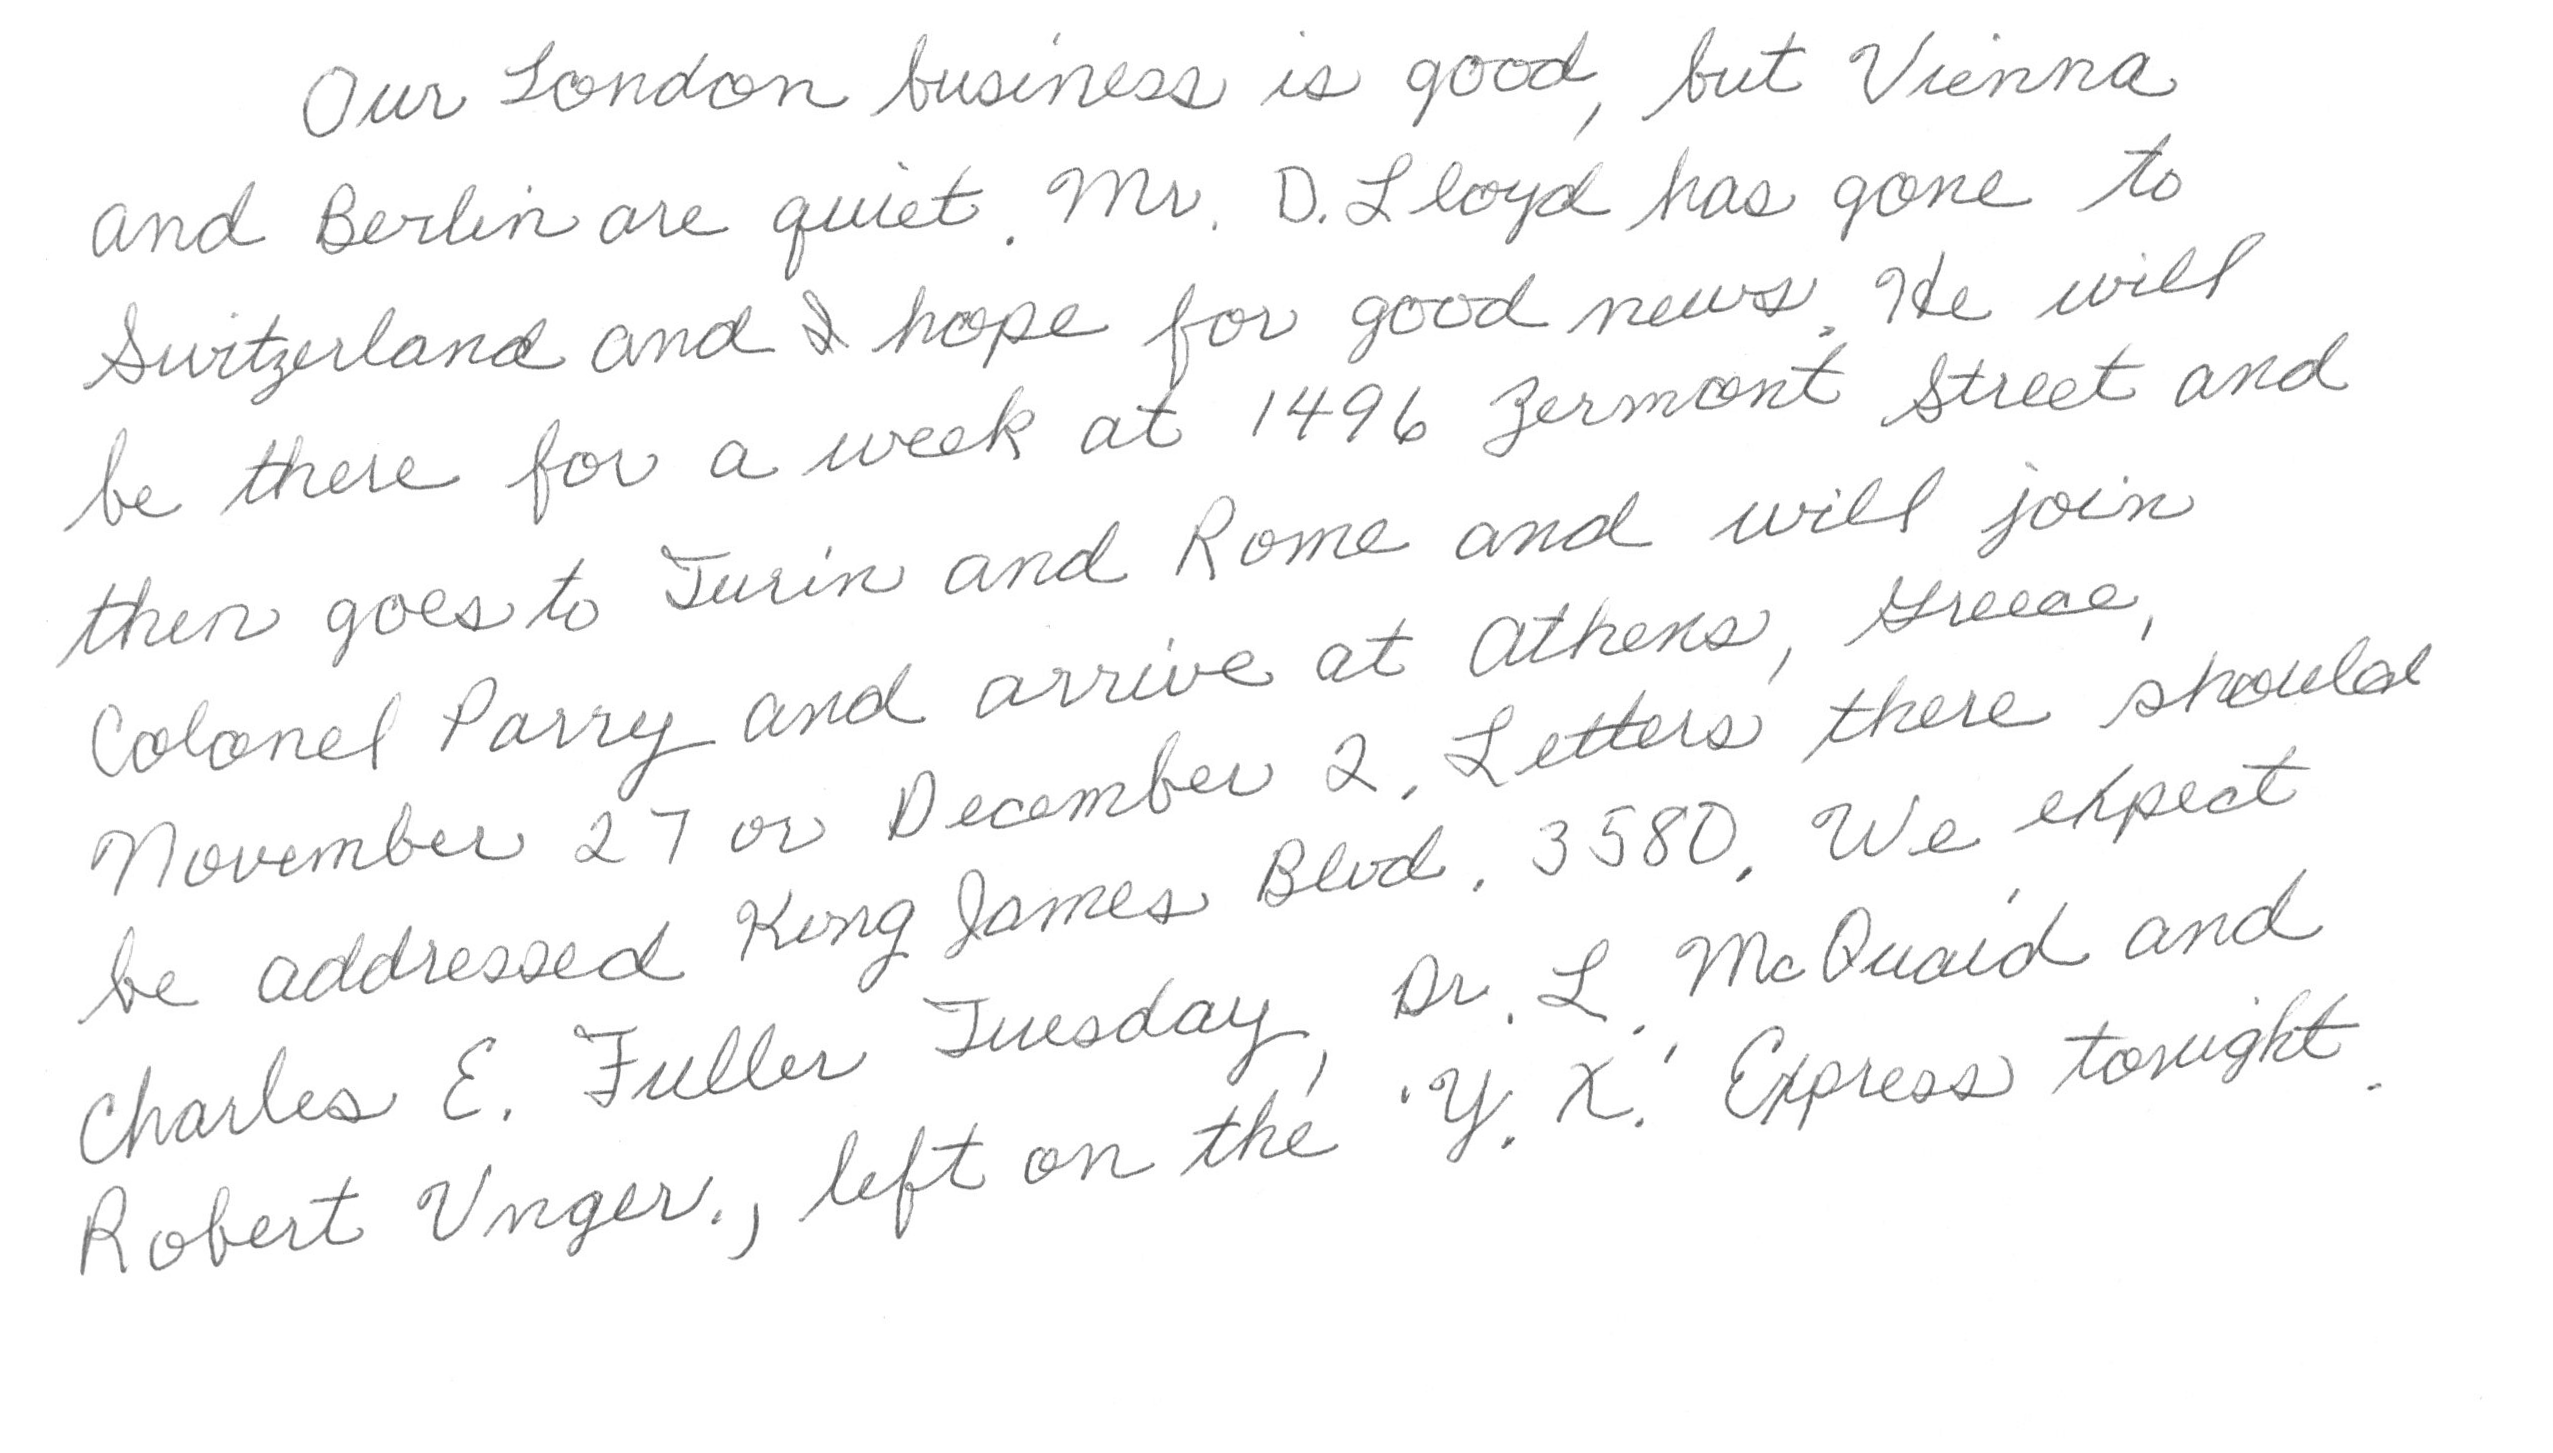 Our London business is good, but Vienna
and Berlin are quiet. Mr. D. Lloyd has gone to
Switzerland and I hope for good news. He will
be there for a week at 1496 Zermont Street and
then goes to Turin and Rome and will join
Colonel Parry and arrive at Athens, Greece,
November 27 or December 2. Letters there should
be addressed King James Blvd. 3580. We expect
Charles E. Fuller Tuesday, Dr. L. McQuaid and
Robert Unger., left on the 'Y. X.' Express tonight.